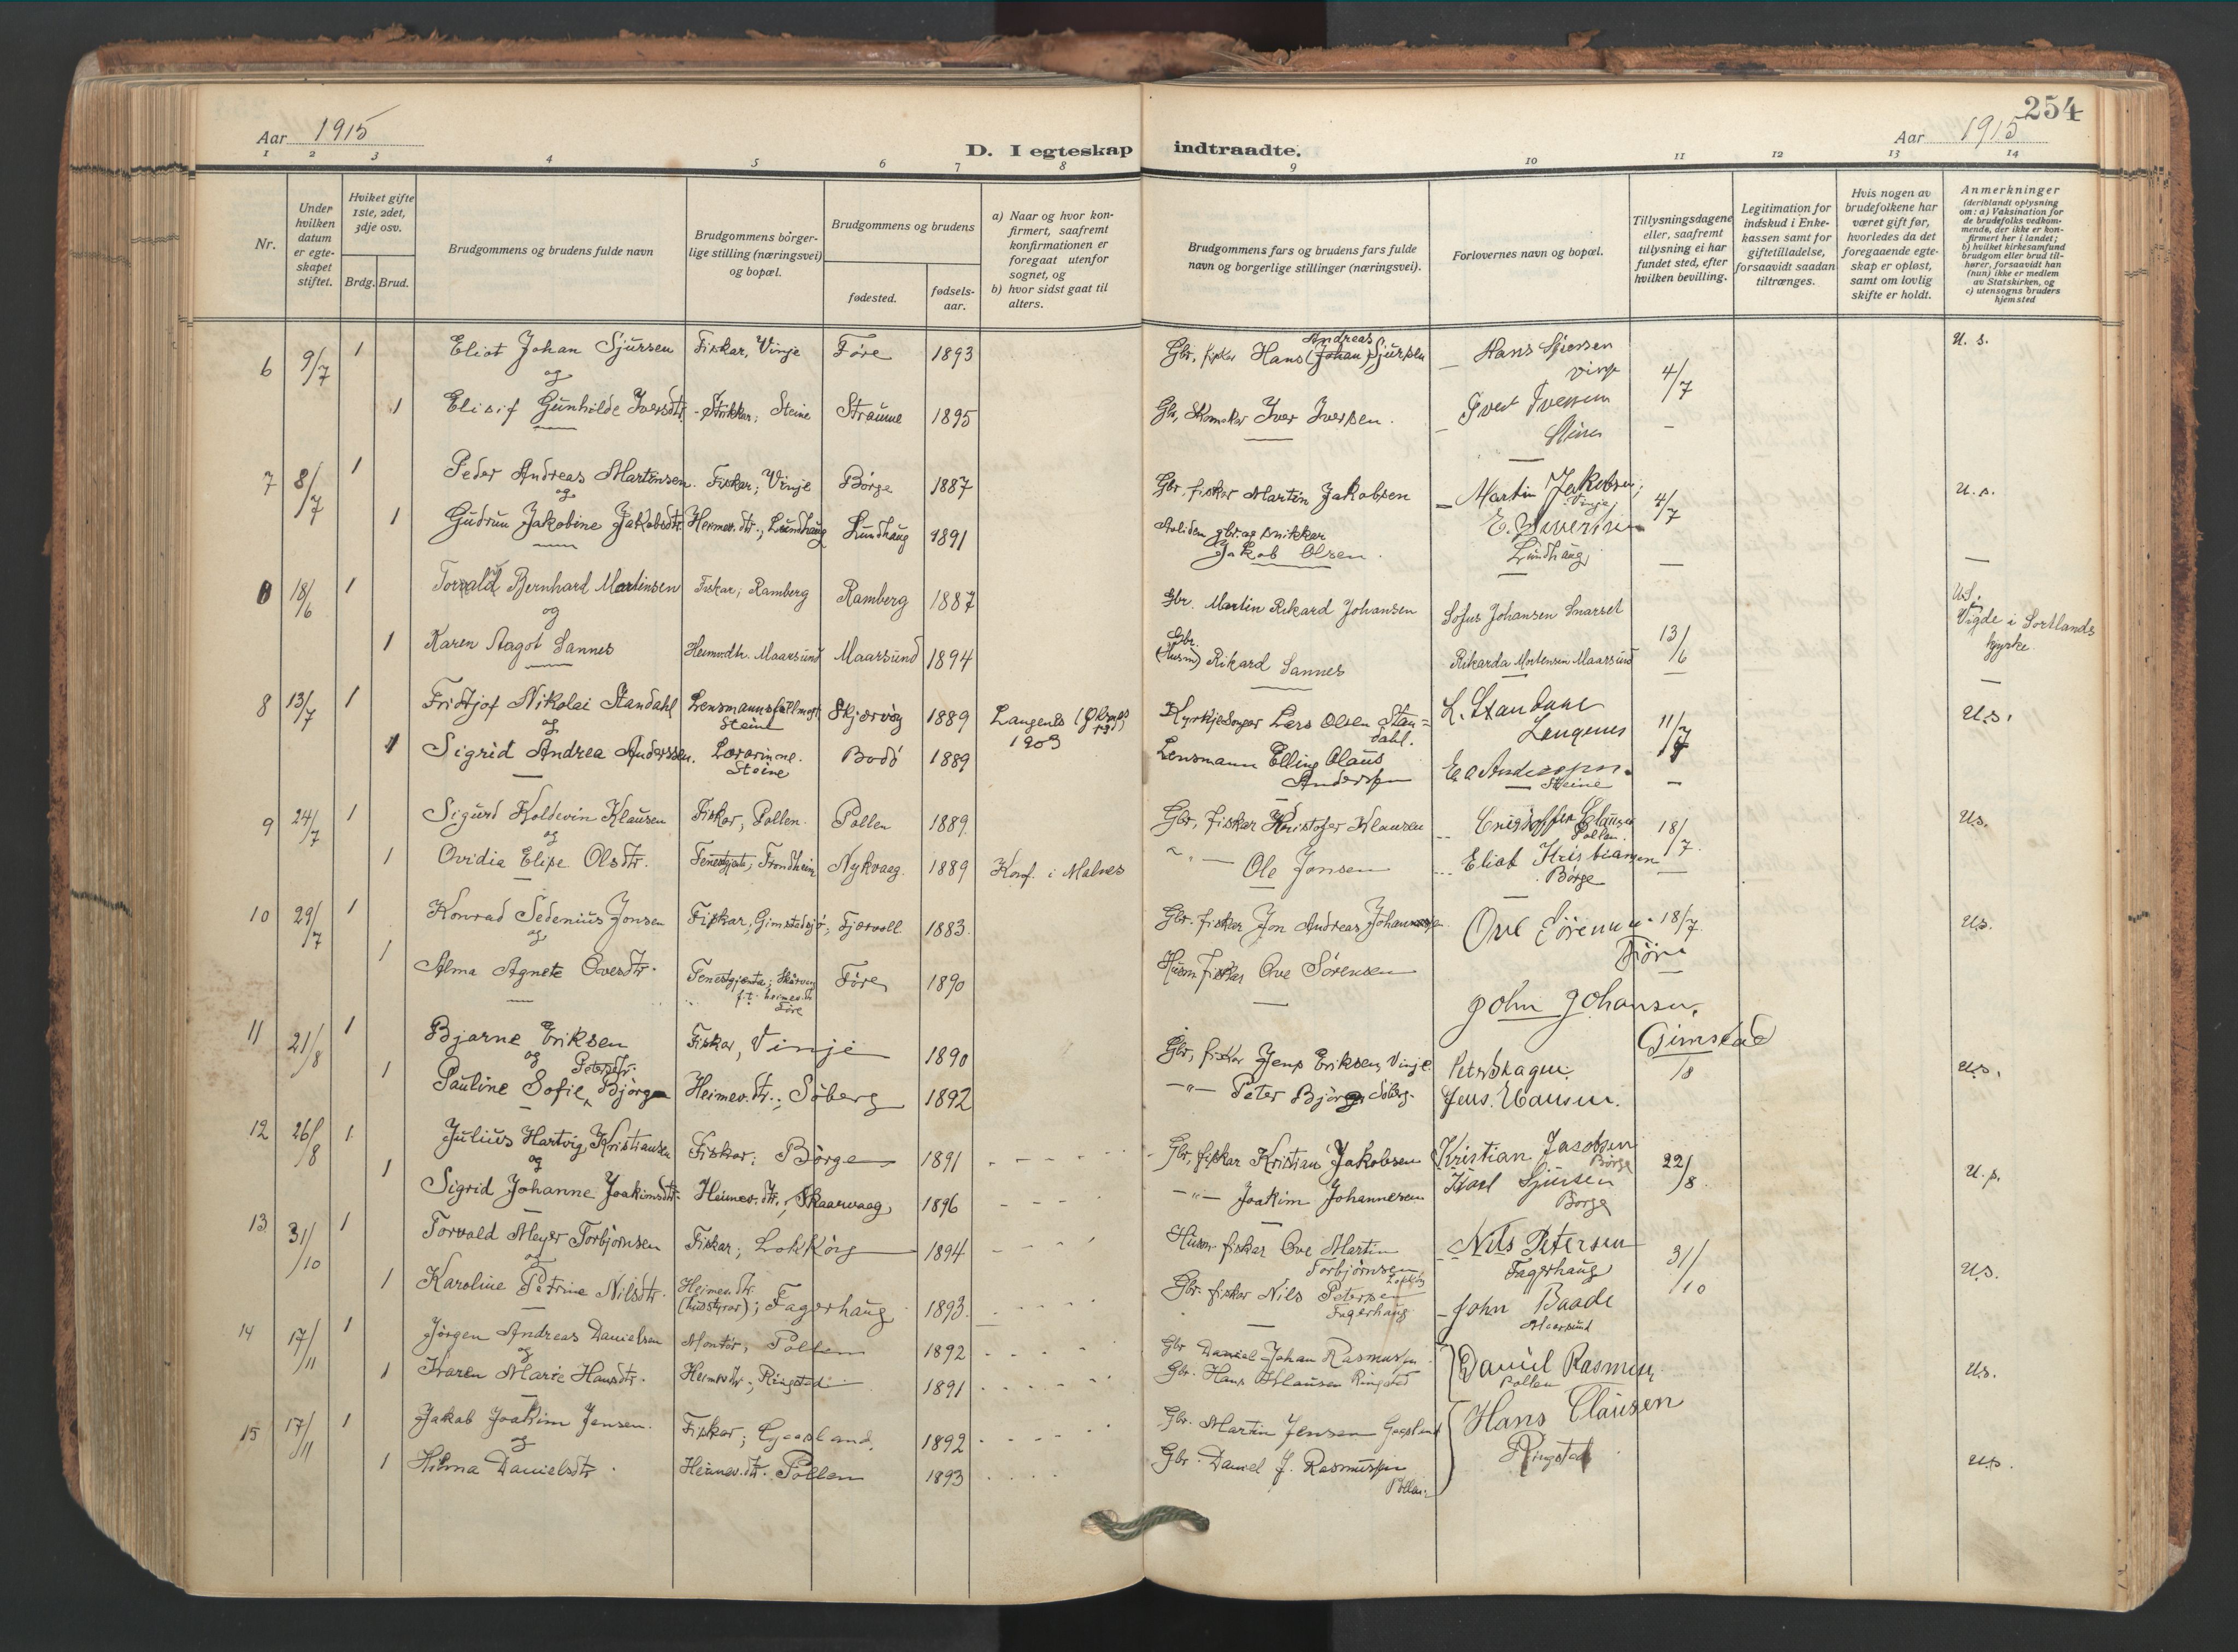 254
Aar 1915
D. I egteskap indtraadte.
Aar 1915
1 2 3 4 5 6 7 8 9 10 11 12 13 14
Nr.
Under hvilken datum er egteskapet stiftet.
Hviket gifte 1ste, 2det, 3dje osv.
Brdg. Brud.
Brudgommens og brudens fulde navn
Brudgommens börgerlige stilling (næringsvei) og bopæl.
Brudgommens og brudens
fødested.
fødselsaar.
a) Naar og hvor konfirmert, saafremt konfirmationen er foregaat utenfor sognet, og
b) hvor sidst gaat til alters.
Brudgommens fars og brudens fars fulde navn og borgerlige stillinger (næringsvei).
Forlovernes navn og bopæl.
Tillysningsdagene eller, saafremt tillysning ei har fundet sted, efter hvilken bevilling.
Legitimation for indskud i Enkekassen samt for giftetilladelse, forsaavidt saadan tiltrænges.
Hvis nogen av brudefolkene har været gift før, hvorledes da det foregaaende egteskap er opløst, samt om lovlig skifte er holdt.
Anmerkninger (deriblandt oplysning om: a) Vaksination for de brudefolks vedkommende, der ikke er konfirmert her i landet; b) hvilket kirkesamfund brudgom eller brud tilhører, forsaavidt han (hun) ikke er medlem av Statskirken, og c) utensogns bruders hjemsted
6 9/7 1 Eliot Johan Sjursen Fiskar, Vinje Føre 1893 Gbr, fiskar Hans (Johan) Andreas Sjursen Hans Sjursen Vinje 4/7 U.s.
og
1 Elisif Gunhilde Iversdtr. Steine Straume 1895 Gbr, Skomakar Iver Iversen. Ivert Iversen Steine
7 8/7 1 Peder Andreas Martinsen. Fiskar; Vinje Børge 1887 Gbr. fiskar Martin Jakobsen Martin Jakobsen; Vinje 4/7 U.s.
og
1 Gudrun Jakobine Jakobsdtr. Heimev.dtr.; Lundhaug Lundhaug 1891 gbr. og snikkar Jakob Olsen. Lundhaug
18/6 1 Torvald Bernhard Martinsen Fiskar; Ramberg Ramberg 1887 Gbr. Martin Rikard Johansen Sofus Johansen Snarset 13/6 U.S. Vigde i Sortlands kyrke.
og
1 Karen Aagot Sannes Heimev.dtr. Maarsund Maarsund 1894 Gbr. (Husm) Rikard Sannes Rikarda Mortensen Maarsund
8 13/7 1 Fridtjof Nikolai Standahl Lensmannsfullmegt. Steine Skjervøy 1889 Langenes 1903 Kyrkjesongar Lars Olsen Standahl. L. Standahl Langenes 11/7 U.s.
og
1 Sigrid Andrea Anderssen. Lærarinne. Steine Bodö 1889 Lensmann Elling Olaus Anderssen E. O. Anderssen. Steine
9 24/7 1 Sigurd Koldevin Klausen Fiskar, Pollen. Pollen 1889. Gbr, fiskar Kristofer Klausen Cristoffer Clausen Pollen. 18/7. U.s.
og
1 Ovidia Elise Olsdtr. Tenestgjente, Trondheim Nykvaag. 1889 Konf. i Malnes Ole Jonsen Eliot Kristiansen Børge
10 29/7 1 Konrad Sedenius Jonsen Fiskar; Gimstadsjø; Fjærvoll 1883. Gbr. fiskar Jon Andreas Johannessen. Ove Sørensen 18/7. U.s.
og
1 Alma Agnete Ovesdtr. Tenestgjenta; f.t. heimev.dtr. Føre Føre 1890 Husm. fiskar Ove Sörensen Före
John Johansen, Gimstad
11 21/8 1 Bjarne Eriksen Fiskar, Vinje 1890 Gbr, fiskar Jens Eriksen, Vinje. Peter Skagen. 1/8 U.s.
og
1 Pauline Sofie Petersdtr. Björge Heimev.dtr.; Söberg 1892 Peter Björge Söberg. Jens Hansen.
12 26/8 1 Julius Hartvig Kristiansen Fiskar; Børge 1891 Gbr, fiskar Kristian Jakobsen Kristian Jacobsen Börge 22/8 U.s.
og
1 Sigrid Johanne Joakimsdtr. Heimev.dtr.; Skaarvaag 1896 Joakim Johannesen Karl Sjursen Børge
13 31/10 1 Torvald Meyer Torbjørnsen Fiskar; 1894 Husm. fiskar Ove Martin Torbjørnsen Nils Petersen Fagerhaug 31/10 U.s.
og
1 Karoline Petrine Nilsdtr. Heimev.dtr. (husstyrar); Fagerhaug 1893. Gbr. fiskar Nils Petersen Fagerhaug John Baade Maarsund
14 17/11 1 Jørgen Andreas Danielsen Montör; Pollen 1892 Gbr Daniel Johan Rasmussen Daniel Rasmussen Pollen U.s.
og
1 Karen Marie Hansdtr. Heimev.dtr.; Ringstad 1891 Gbr. Hans Klausen Ringstad
15 17/11 1 Jakob Joakim Jensen. Fiskar; Gaasland, 1892 Gbr. Martin Jensen Gaasland Hans Clausen Ringstad
og
1 Hilma Danielsdtr. Heimev.dtr. Pollen 1893 Gbr. Daniel J. Rasmussen Pollen U.s.